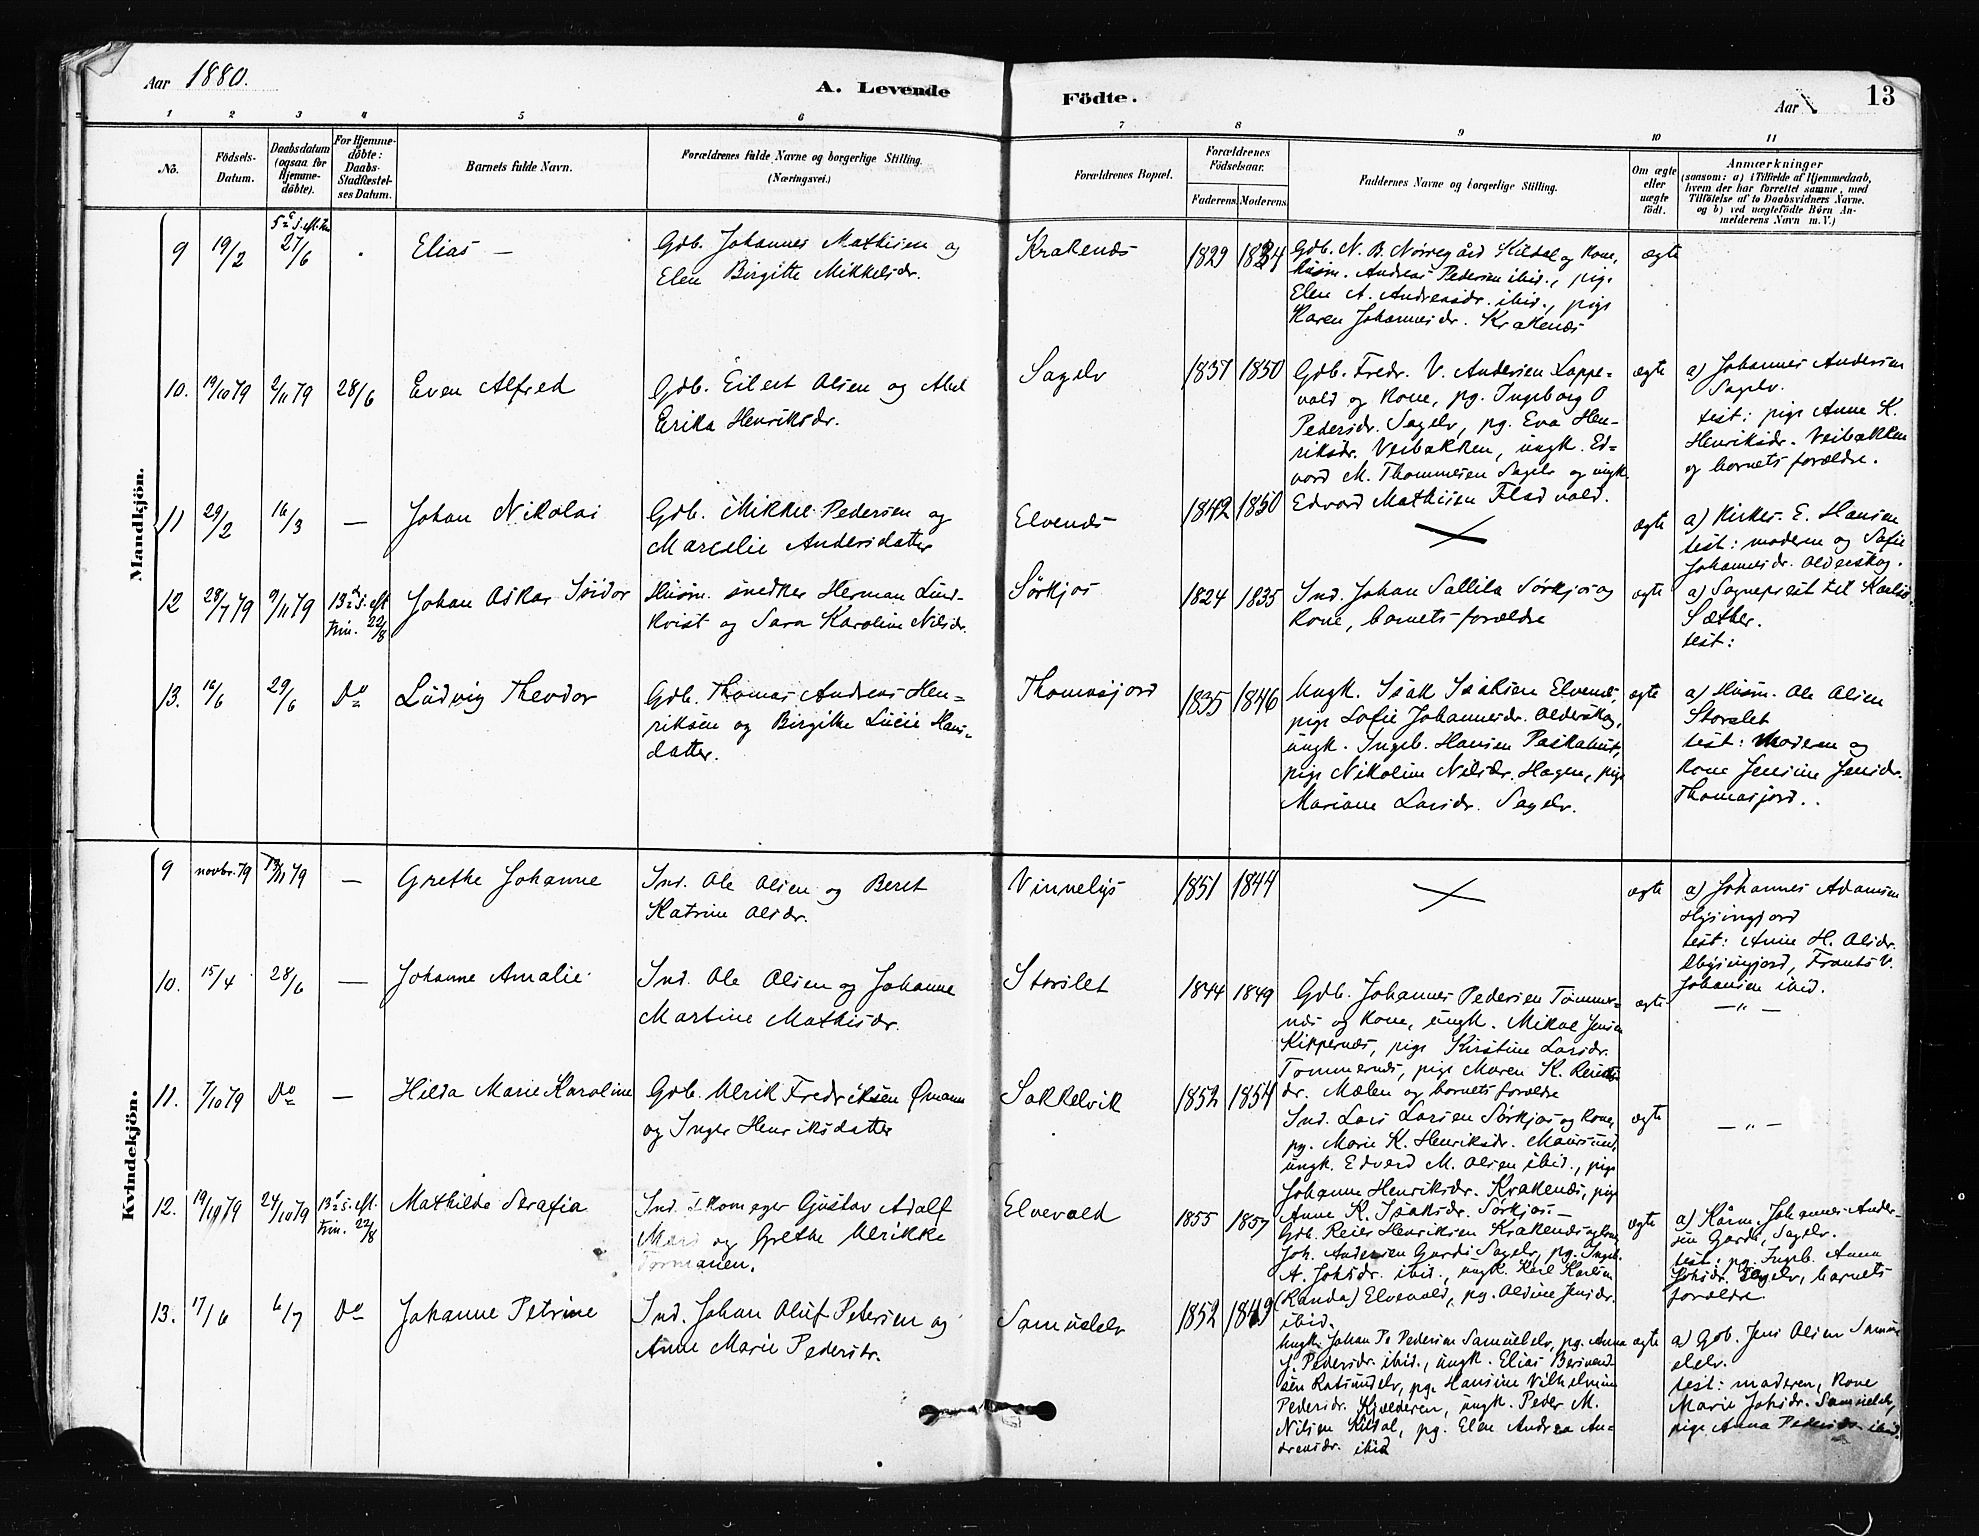 Aar 1880.
A. Levende Födte.
Aar
13
1 2 3 4 5 6 7 8 9 10 11
No.
Födsels-Datum.
Daabsdatum (ogsaa for Hjemme-döbte).
For Hjemme-döbte: Daabs-Stadfæstel-ses Datum.
Barnets fulde Navn.
Forældrenes fulde Navne og borgerlige Stilling. (Næringsvei.)
Forældrenes Bopæl.
Forældrenes Födselsaar.
Faderens. Moderens.
Faddernes Navne og borgerlige Stilling.
Om ægte eller uægte födt.
Anmærkninger
(saasom: a) i Tilfælde af Hjemmedaab, hvem der har forrettet samme, med Tilföielse af to Daabsvidners Navne. og b) ved uægtefödte Börn An-melderens Navn m. V.)
Mandkjön.
9 19/2 27/6 Elias —
Gdb. Johannes Mathisen og
Elen Birgitte Mikkelsdr.
Krakenæs 1829 1834
Gdb. N. B. Nørregård Kildal og kone,
Husm. Andreas Pedersen ibid., pige
Elen A. Andreasdr. ibid., pige
Karen Johannesdr. Krakenæs
ægte
10. 19/10 79 2/11 79 28/6 Even Alfred
Gdb. Eilert Olsen og Abel
Erika Henriksdr.
Sagelv 1837 1850
Gdb. Fredr. V. Andersen Lappe-
vold og kone, pg. Ingeborg O
Pedersdr. Sagelv, pg. Eva Hen-
riksdr. Veibakken, ungk. Ed-
vard M. Thommesen Sagelv og ungk.
Edvard Mathisen Fladvold.
ægte
a) Johannes Andersen
Sagelv.
test: pige Anne K.
Henriksdr. Veibakken
og barnets forældre.
11 29/2 16/3 — Johan Nikolai
Gdb. Mikkel Pedersen og
Marcelie Andersdatter
Elvenæs 1842 1850
ægte
a) Kirkes. E. Hansen
test: moderen og Sofie
Johannesdr. Olderskog.
12 28/7 79 9/11 79 13de s. eft. trin. 22/8
Johan Oskar Isidor
Husm. snedker Herman Lind-
kvist og Sara Karoline Nilsdr.
Sørkjos 1824 1835
Ind. Johan Sallila Sørkjos og
kone, barnets forældre
ægte
a) Sogneprest til Karlsö
Sæther.
test:
13. 16/6 29/6 Do Ludvig Theodor
Gdb. Thomas Andreas Hen-
riksen og Birgitte Lucie Hans-
datter.
Thomasjord 1835 1846
Ungk. Isak Isaksen Elvenæs,
pige Sofie Johannesdr. Olderskog,
ungk. Ingeb. Hansen
pige Nikoline Nilsdr. Hagen, pige
Mariane Larsdr. Sagelv.
ægte
a) Husm. Ole Olsen
Storslet
test: Moderen og
kone Jensine Jensdr.
Thomasjord.
Kvindekjön.
9 novbr. 79 79 — Grethe Johanne
Ind. Ole Olsen og Beret
Katrine Olsdr.
Vinnelys 1851 1844
ægte
a) Johannes Adamsen
test: Anne H. Olsdr.
Frants V.
Johansen ibid.
10. 15/4 28/6 — Johanne Amalie
Ind. Ole Olsen og Johanne
Martine Mathisdr.
Storslet 1844 1849
Gdb. Johannes Pedersen Tømmer-
næs og kone, ungk. Mikal Jensen
Kippernæs, pige Kirstine Larsdr.
Tømmernæs, pige Maren K.
dr. Mælen og barnets forældre
ægte
— „ —
11. 7/10 79 Do — Hilda Marie Karoline
Gdb. Ulrik Fredriksen Ømann
og Inger Henriksdatter
Sakkelvik 1852 1854
Ind. Lars Larsen Sørkjos og kone,
pg. Marie K. Henriksdr. Maursund,
ungk. Edvard M. Olsen ibid., pige
Johanne Henriksdr. Krakenæs, pige
Anne K. Isaksdr. Sørkjos —
ægte
— „ —
12. 19/10 79 24/10 79 13de s. eft. trin. 22/8
Mathilde Serafia
Ind. skomager Gustav Adolf
og Grethe Ulrikke
Elvevold 1855 1857
Gdb. Reier Henriksen Krakenæs og kone
Joh. Andersen Garde Sagelv, pg. Ingeb.
A. Johsdr. ibid., ungk. Karl Karlsen
(Randa) Elvevold, pg. Oldine Jensdr.
ibid.
ægte
a) Johannes Ander-
sen Garde, Sagelv.
test: pg. Ingeb. Anna
Johsdr. Sagelv, barnets
forældre
13. 17/6 6/7 Do Johanne Petrine
Ind. Johan Oluf Petersen og
Anne Marie Pedersdr.
Samuelelv 1852 1849
Ungk. Johan P. Pedersen Samuelelv, pg. Anna
L. Pedersdr. ibid., ungk. Elias
sen Rotsundelv, pg. Hansine Vilhelmine
Pedersdr. Kjelderen, ungk. Peder M.
Nilsen Kildal, pg. Elen Andrea An-
dreasdr. ibid
ægte
a) Gdb. Jens Olsen Samu-
elelv.
test: moderen, kone
Marie Johsdr. Samuelelv,
pige Anna Pedersdr. ibid.